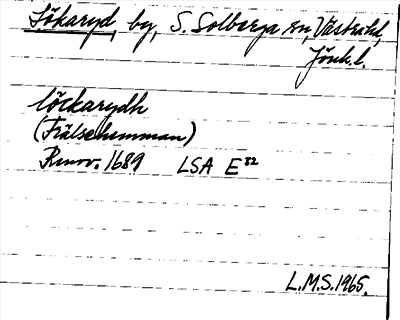 Lökaryd, by, S. Solberga sn, Västra hd,
Jönk. l.
löckarydh
(Frälse hemman)
Renov. 1689 LSA E⁵²
L.M.S. 1965.